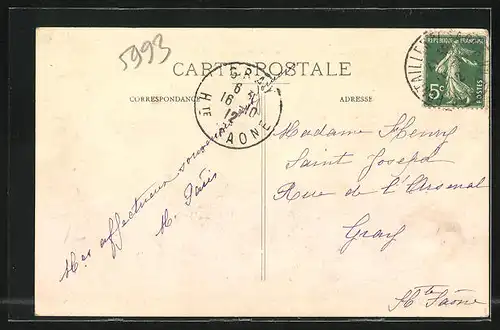 5993
CARTE POSTALE
CORRESPONDANCE
ADRESSE
REPUBLIQUE FRANÇAISE
5c
POSTES
GRAY
6
16 - 10
12
HTE SAONE
Mes affectueux souvenirs
M. Paris
Madame Henry
Saint Joseph
Rue de l'Arsenal
Gray
Hte Saône